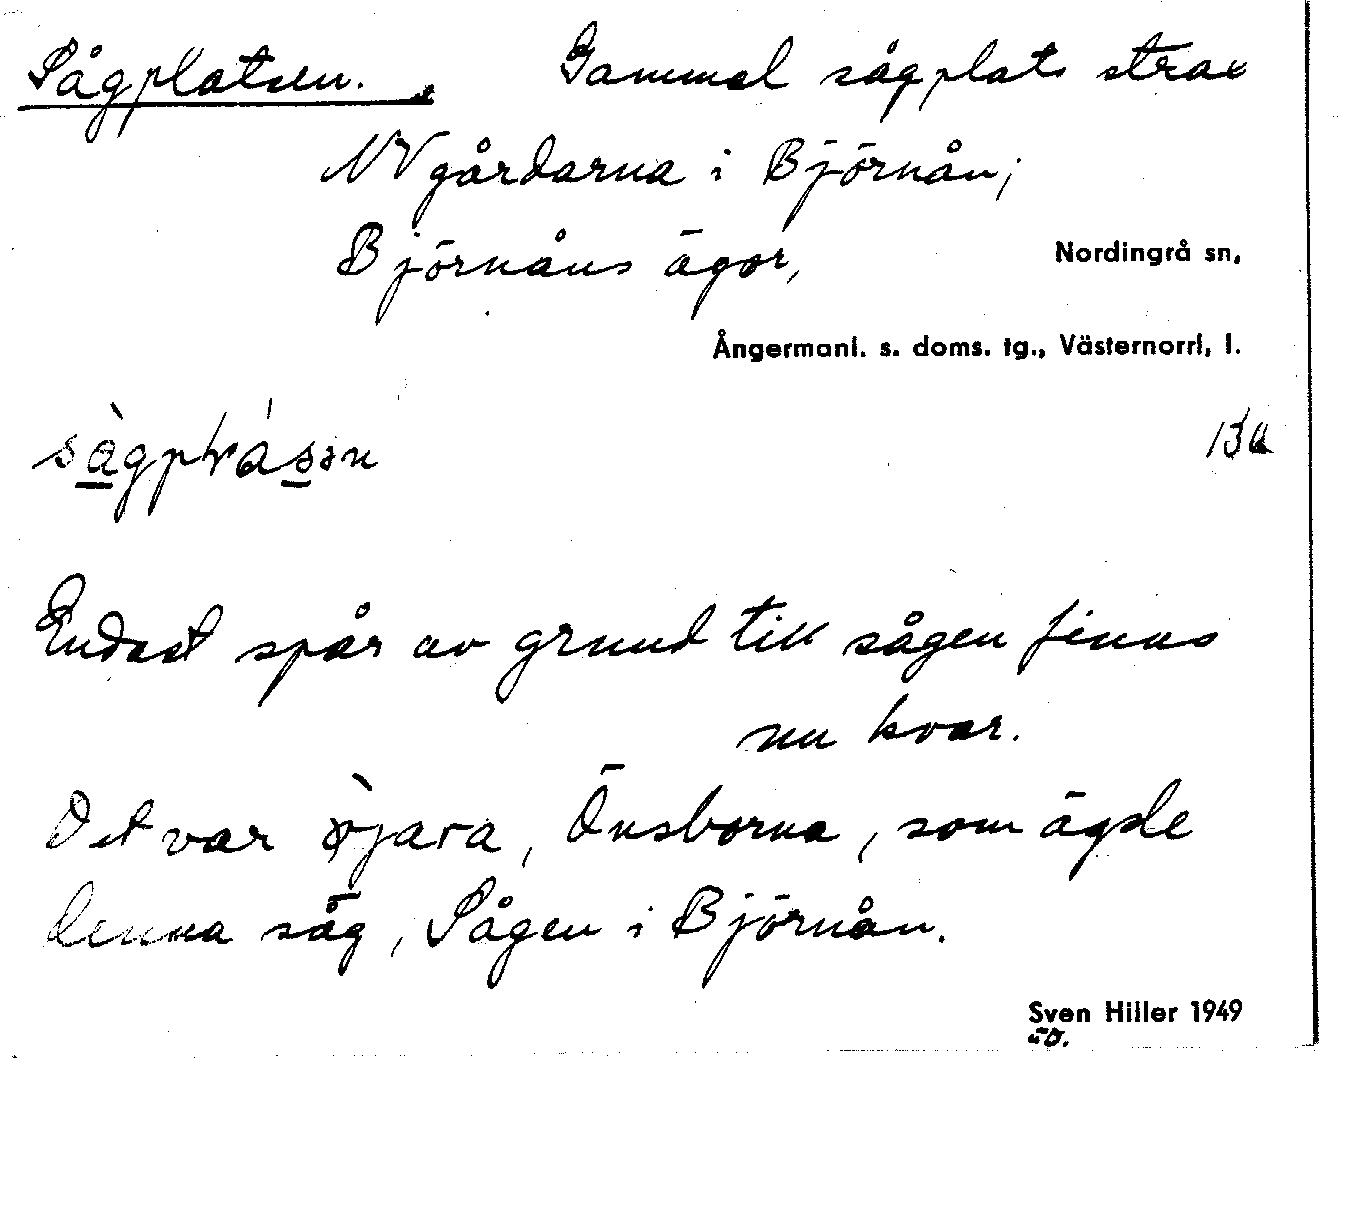 Sågplatsen. Gammal sågplats strax
NV gårdarna i Björnån;
Björnåns ägor,
Nordingrå sn,
Ångermanl. s. doms. tg., Västernorrl, l.
13a
Endast spår av grund till sågen finns
nu kvar.
Det var Önsborna, som ägde
denna såg, Sågen i Björnån.
Sven Hiller 1949